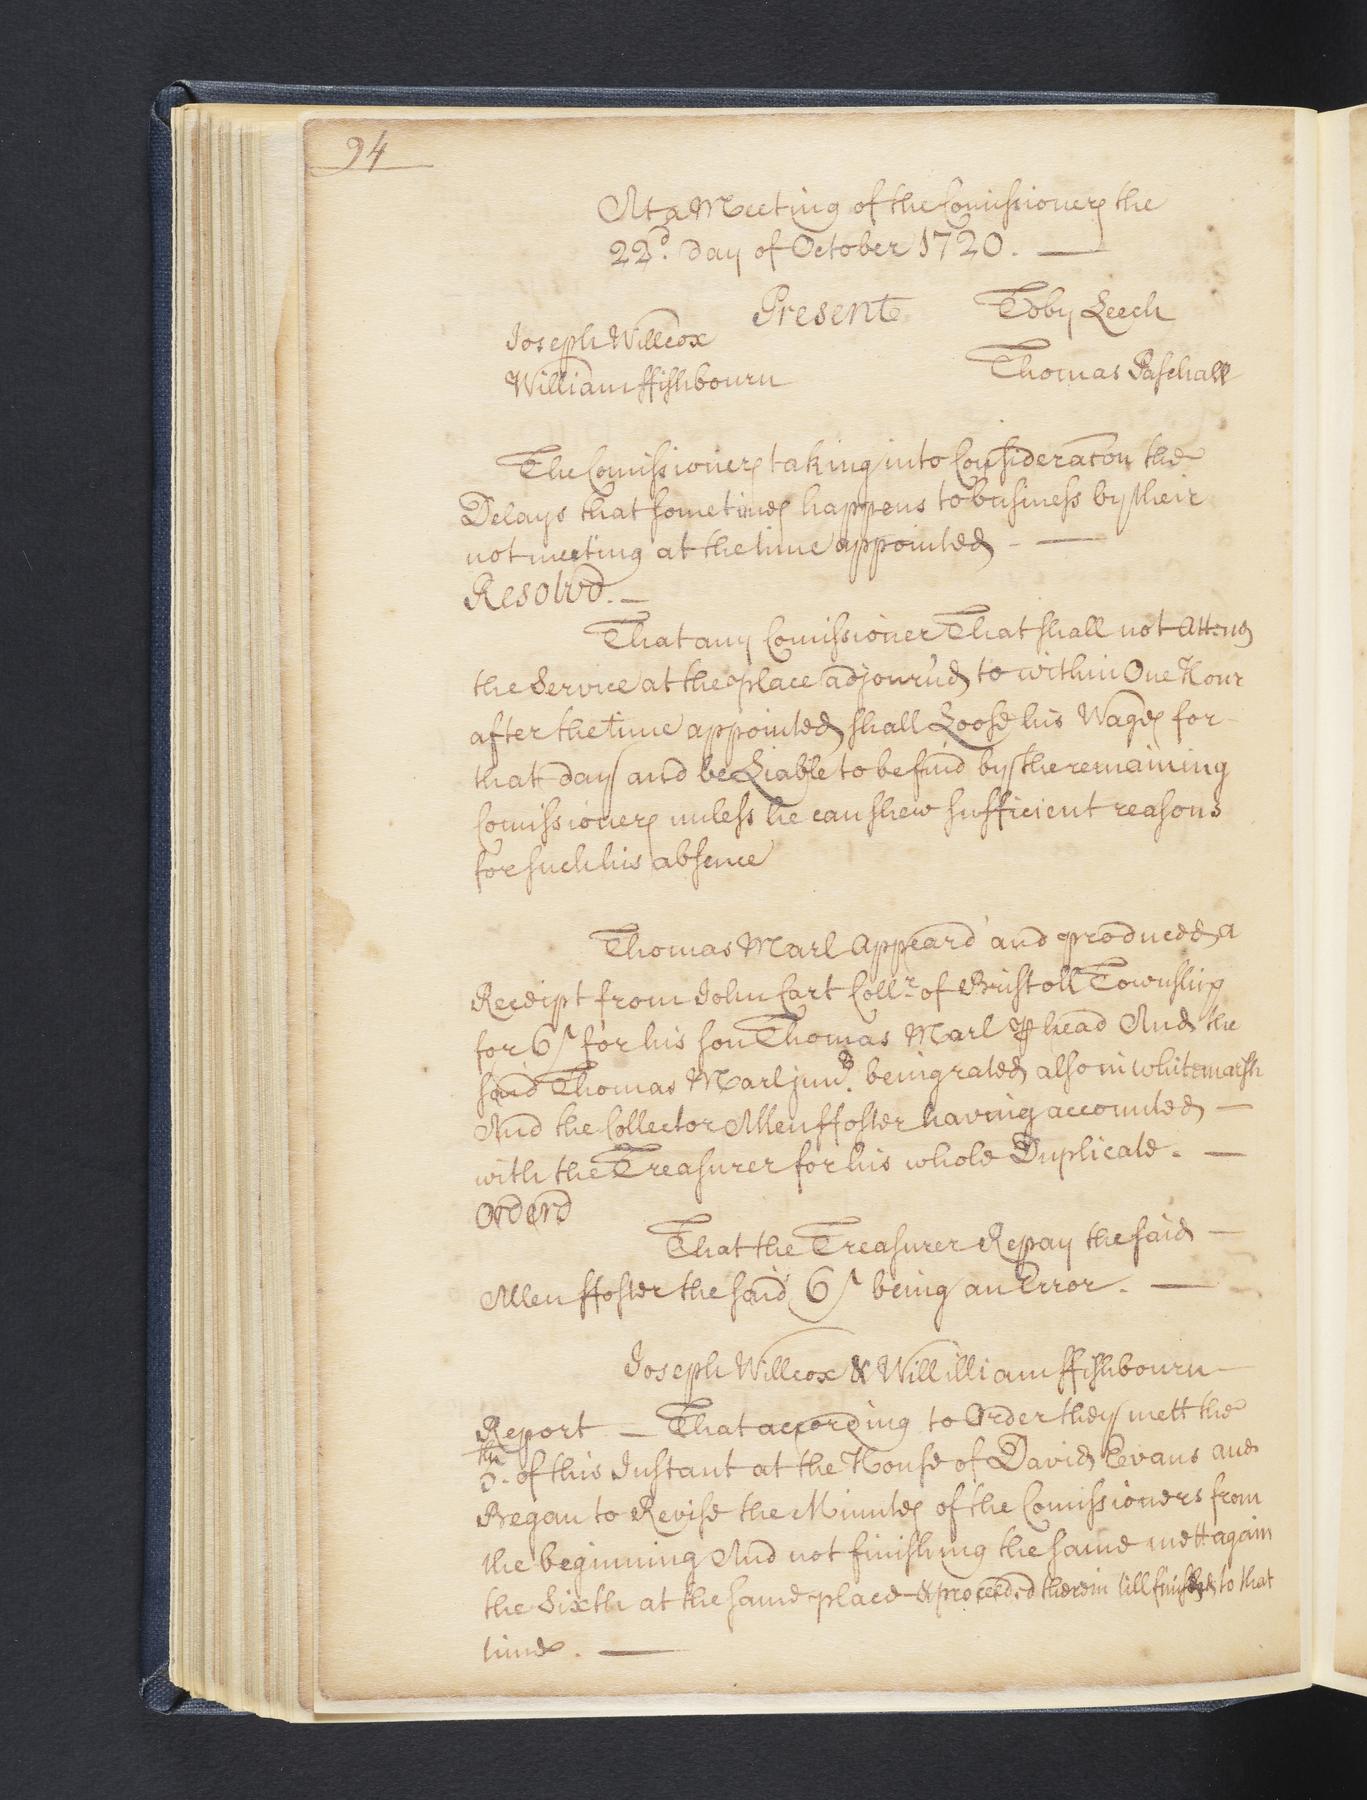 94
At a Meeting of the Comissioners the
22d. day of October 1720. —
Present
Joseph Willcox
William ffishbourn
Toby Leech
Thomas Paschall
The Comissioners taking into Consideracon the
Delays that sometimes happens to business by their
not meeting at the time appointed - —
Resolvd. —
That any Comissioner That shall not Attend
the Service at the place adjourn'd to within One Hour
after the time appointed shall Loose his Wages for
that day and be Liable to be find by the remaining
Comissioners unless he can shew sufficient reasons
for such his absence
Thomas Marl Appeard and produced a
Receipt from John Cart Collr. of Bristoll Township
for 6s for his son Thomas Marl ⅌ head And the
said Thomas Marl junr. being rated also in Whitemarsh
And the Collector Allen ffoster having accounted —
with the Treasurer for his whole Duplicate. —
Orderd
That the Treasurer Repay the said —
Allen ffoster the said 6s being an Error. —
Joseph Willcox & Willilliam ffishbourn
Report — That according to Order they mett the
5th. of this Instant at the House of David Evans and
Began to Revise the Minutes of the Comissioners from
the beginning And not finishing the same mett again
the Sixth at the same place & proceeded therein till finished to that
time. —